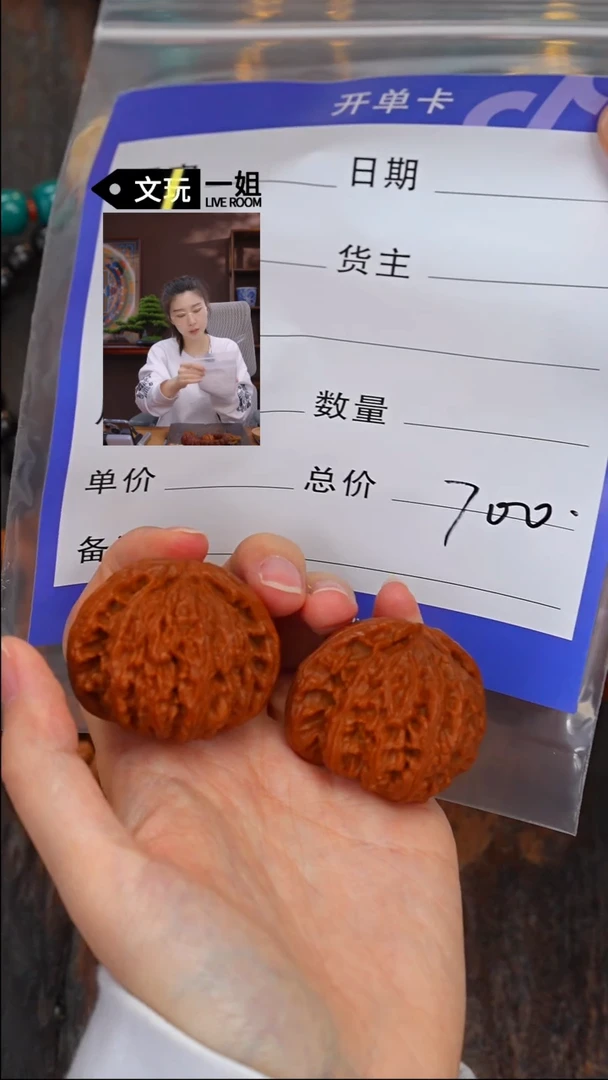 开单卡
日期
文玩一姐
LIVE ROOM
货主
数量
单价 总价 700.
备